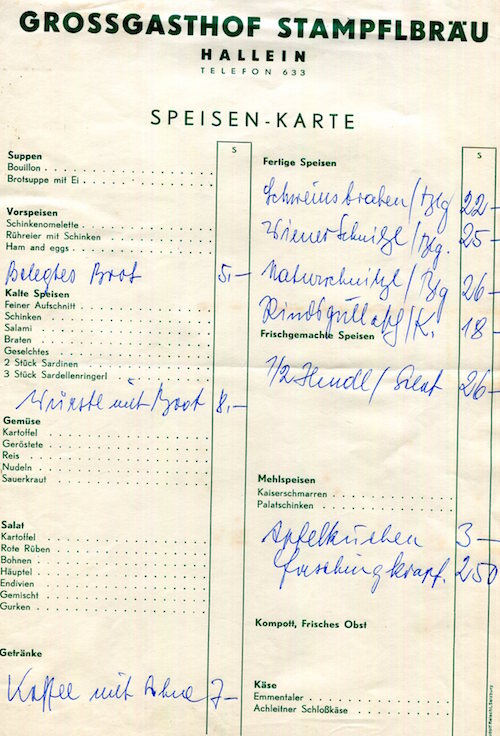 GROSSGASTHOF STAMPFLBRÄU
HALLEIN
TELEFON 633
SPEISEN-KARTE
S
Suppen
Bouillon
Brotsuppe mit Ei
Vorspeisen
Schinkenomelette
Rühreier mit Schinken
Ham and eggs
Belegtes Brot 5,–
Kalte Speisen
Feiner Aufschnitt
Schinken
Salami
Braten
Geselchtes
2 Stück Sardinen
3 Stück Sardellenringerl
Würstl mit Brot 8,–
Gemüse
Kartoffel
Geröstete
Reis
Nudeln
Sauerkraut
Salat
Kartoffel
Rote Rüben
Bohnen
Häuptel
Endivien
Gemischt
Gurken
Getränke
Kaffee mit 7–
S
Fertige Speisen
Schweinsbraten / 22–
Wiener Schnitzl / 25–
Naturschnitzl / 26–
Rindsgullasch / K. 18–
Frischgemachte Speisen
1/2 Hendl / Salat 26–
Mehlspeisen
Kaiserschmarren
Palatschinken
Apfelkuchen 3–
Faschingkrapf. 250
Kompott, Frisches Obst
Käse
Emmentaler
Achleitner Schloßkäse